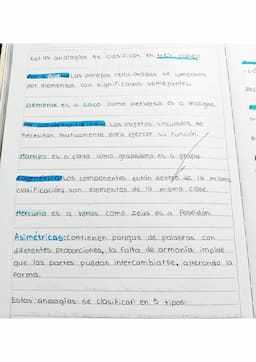 Estas analogías se clasifican en tres clases:
Las parejas relacionadas se componen
por elementos con significados semejantes.
demente es a loco como perversa es a maligna.
Los objetos vinculados se
necesitan mutuamente para ejercer su función.
Martillo es a clavo como grapadora es a grapa.
Los componentes están dentro de la misma
clasificación; son elementos de la misma clase.
Mercurio es a Venus como Zeus es a Poseidón.
Asimétricas: Contienen parejas de palabras con
diferentes proporciones, la falta de armonía impide
que las partes puedan intercambiarse, alterando la
forma.
Estas analogías se clasifican en 5 tipos: